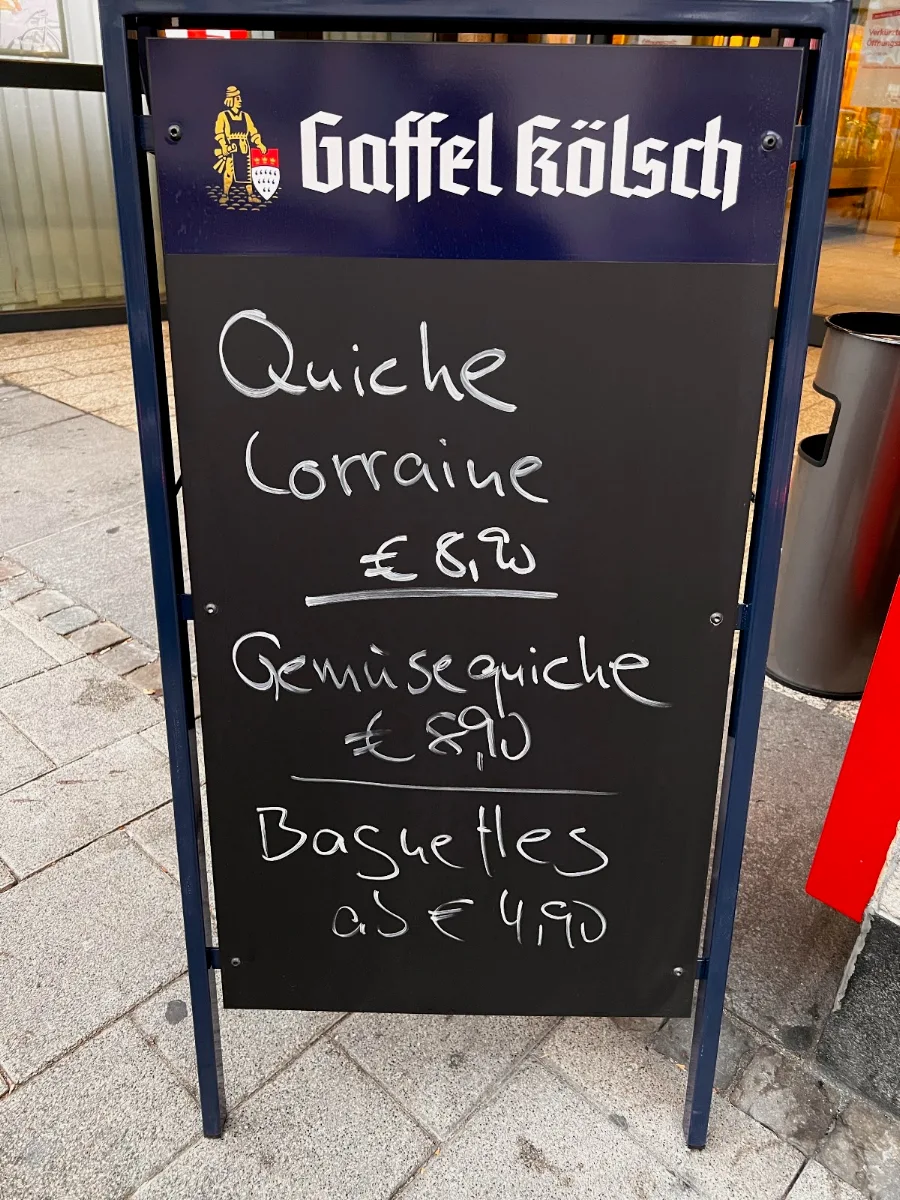 Gaffel Kölsch
Quiche
Lorraine
€ 8,90
Gemüsequiche
€ 8,90
Baguettes
ab € 4,90